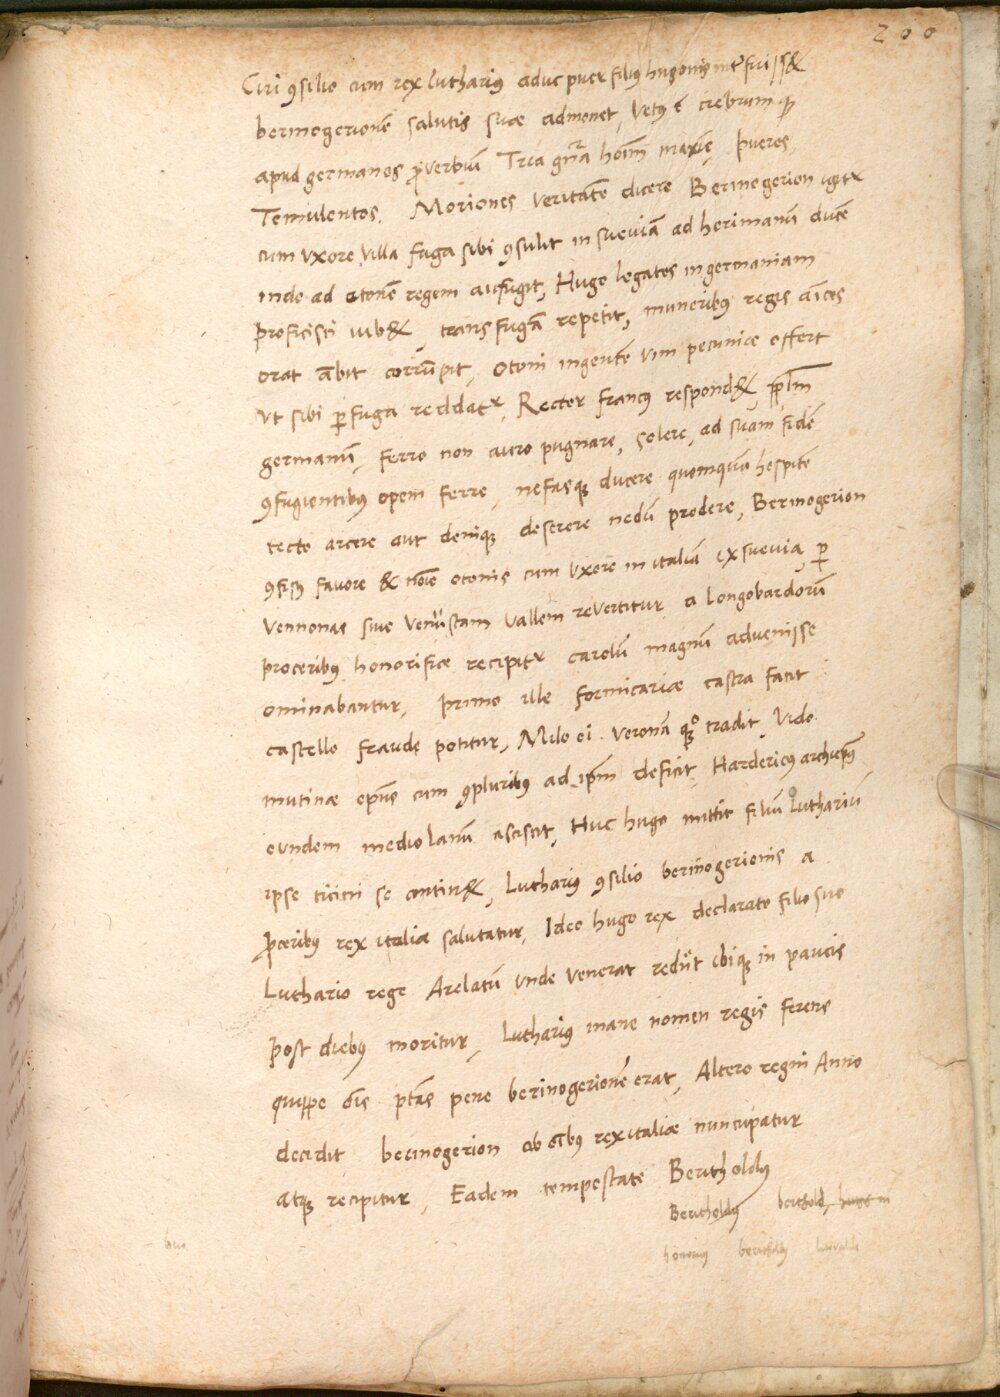 200
Ciri ꝯsilio cum rex luthariꝰ aduc puer filiꝰ hugonis int̄fuiss&
bermogerionē salutis suæ admonet, Vetꝰ ē crebrum qꝫ
apud germanos ꝓverbiū Tria gn̄ra hoīm maxīe, pueros,
Temulentos, Moriones veritatē dicere Berinogerion igit᷑
cum vxore villa fuga sibi ꝯsulit in sueviā ad herimanū ducē
inde ad otonē regem aufugit, Hugo legatos in germaniam
proficisci iub&, transfugā repetit, muneribꝰ regis aīcos
orat ābit corrūpit, Otoni ingentē vim pecuniæ offert
vt sibi ꝑfuga reddat᷑, Rector francꝰ respond&, pp̄lm
germanū, ferro non auro pugnare, solere, ad suam fidē
ꝯfugientibꝰ opem ferre, nefasqꝫ ducere quomquā hospitē
tecto arcere aut deniqꝫ deserere nedū prodere, Berinogerion
ꝯfisꝰ favore & noīe otonis cum vxore in italiā ex suevia, ꝑ
Vennonas siue venustam vallem revertitur a longobardorū
proceribꝰ honorifice recipit᷑ carolū magnū advenisse
ominabantur, primo ille formicariæ castra facit
castello fraude potitur, Milo ei Veronā qꝫ tradit, Vido
mutinæ ep̄us cum ꝯpluribꝰ ad ip̄m deficit, Hardericꝰ archiep̄us
eundem mediolanū asciscit, Huc hugo mittit filiū Luthariū
ipse ticini se contin&, Lutharius ꝯsilio berinogerionis a
ꝓceribꝰ rex italiæ salutatur, Ideo hugo rex declarato filio suo
Luthario rege Arelatū unde venerat rediit ibiqꝫ in paucis
post diebꝰ moritur, Lutharius inane nomen regis ferens
quippe ōis ptās pene berinogerionē erat, Altero regni Anno
decidit berinogerion ab oībꝰ rex italiæ nuncupatur
atqꝫ recipitur, Eadem tempestate Bertholdꝰ
Bertholdꝰ berthold,
honorius